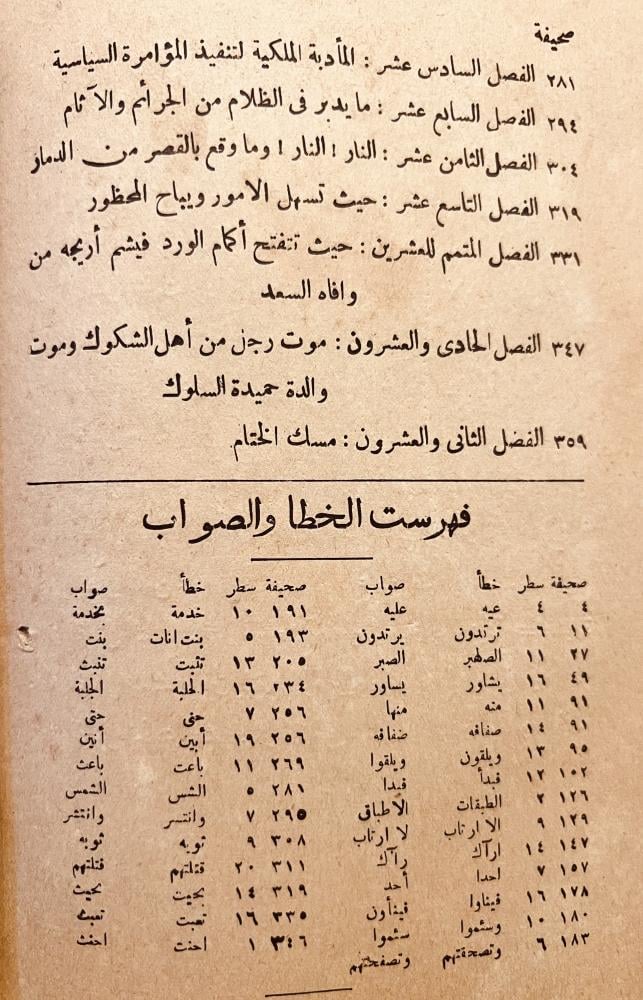 صحيفة
٢٨١ الفصل السادس عشر : المأدبة الملكية لتنفيذ المؤامرة السياسية
٢٩٤ الفصل السابع عشر : ما يدبر فى الظلام من الجرائم والآثام
٣٠٤ الفصل الثامن عشر : النار ! النار ! وما وقع بالقصر من الدمار
٣١٩ الفصل التاسع عشر : حيث تسهل الامور ويباح المحظور
٣٣١ الفصل المتمم للعشرين : حيث تتفتح أكمام الورد فيشم أريجه من
وافاه السعد
٣٤٧ الفصل الحادى والعشرون : موت رجل من أهل الشكوك وموت
والدة حميدة السلوك
٣٥٩ الفضل الثانى والعشرون : مسك الختام
فهرست الخطا والصواب
صحيفة سطر خطأ صواب صحيفة سطر خطأ صواب
٤ ٤ عيه عليه ١٩١ ١٠ خدمة بخدمة
١١ ٦ ترتدون يرتدون ١٩٣ ٥ بنت انات بنت
٢٧ ١١ الصلهبر الصبر ٢٠٥ ١٣ تثبت تنبث
٤٩ ١٦ يشاور يساور ٢٣٤ ١٦ الحلبة الجلبة
٩١ ١١ منه منها ٢٥٦ ٧ حنى حتى
٩١ ١٤ صفافه ضفافه ٢٥٦ ١٩ أبين أنين
٩٥ ١٣ ويلقون ويلقوا ٢٦٩ ١١ باعت باعث
١٠٢ ١٢ فبدأ فبدا ٢٨١ ٥ الشس الشمس
١٢٦ ٢ الطبقات الاطباق ٢٩٥ ٧ وانتسر وانتشر
١٢٩ ٩ الا ارتاب لا ارتاب ٣٠٨ ٩ توبه ثوبه
١٤٧ ١٤ ارآك رآك ٣١١ ٢٠ قتلتهم قتلتهم
١٥٧ ٧ احدا أحد ٣١٩ ١٤ بحيت بحيث
١٧٨ ١٦ فيناوا فينأون ٣٣٥ ١٦ تعبت تعبث
١٨٠ ١٠ وسثموا سئموا ٣٤٦ ١ احنت احنث
١٨٣ ٦ وتصحفتهم وتصفحتهم